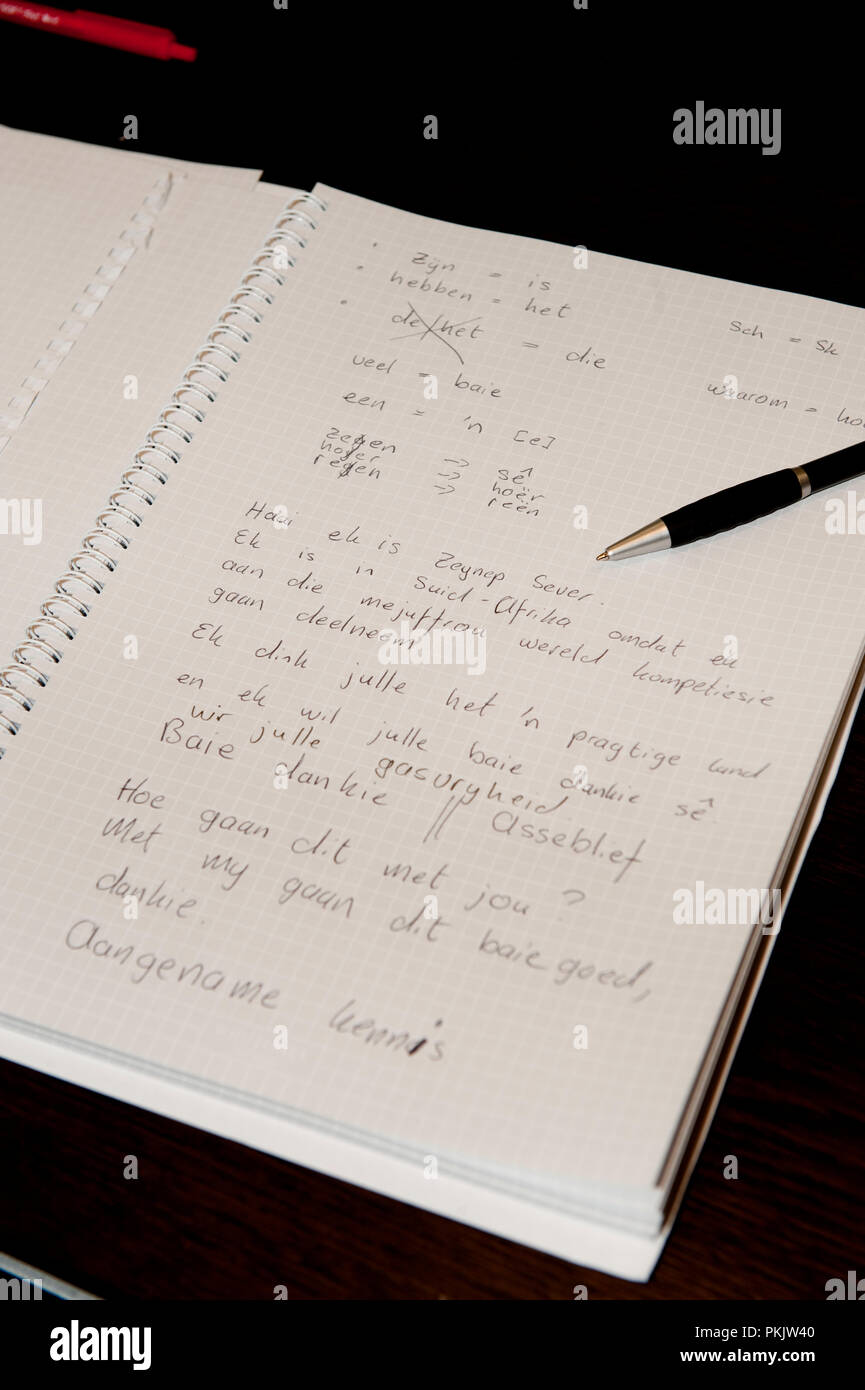 • zijn = is
• hebben = het
• de/het = die
veel = baie
een = 'n [e]
zegen → sê
hoger → hoër
regen → reën
sch = sk
waarom =
Haai ek is Zeynep Sever.
Ek is in Suid-Afrika omdat eu
aan die mejuffrou wereld kompetiesie
gaan deelneem.
Ek dink julle het 'n pragtige land
en ek wil julle baie dankie sê.
wir julle gasvryheid
Baie dankie || asseblief
Hoe gaan dit met jou?
Met my gaan dit baie goed,
dankie.
aangename kennis
alamy
Image ID: PKJW40
www.alamy.com